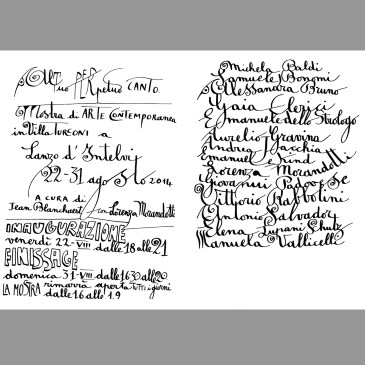 Tuo PERpetuo CANTO
Mostra di ARTE CONTEMPORANEA
in Villa TURCONI a
Lanzo d'Intelvi
22-31 agosto 2014
A CURA DI
Jean Blanchaert con Lorenza Morandotti
INAUGURAZIONE
venerdì 22-VIII dalle 18 alle 21
FINISSAGE
domenica 31-VIII dalle 1630 alle 20
LA MOSTRA rimarrà aperta TUTTI i giorni
dalle 16 alle 19
Michela Baldi
Samuele Bongini
Alessandra Bruno
Gaia Clerici
Emanuele dello Strologo
Aurelio Gravina
Andrea Jacchia
Emanuel Kind
Lorenza Morandotti
Giovanni Padovese
Vittorio Rabbolini
Antonio Salvador
Elena Lurani Schulz
Manuela Vallicelli